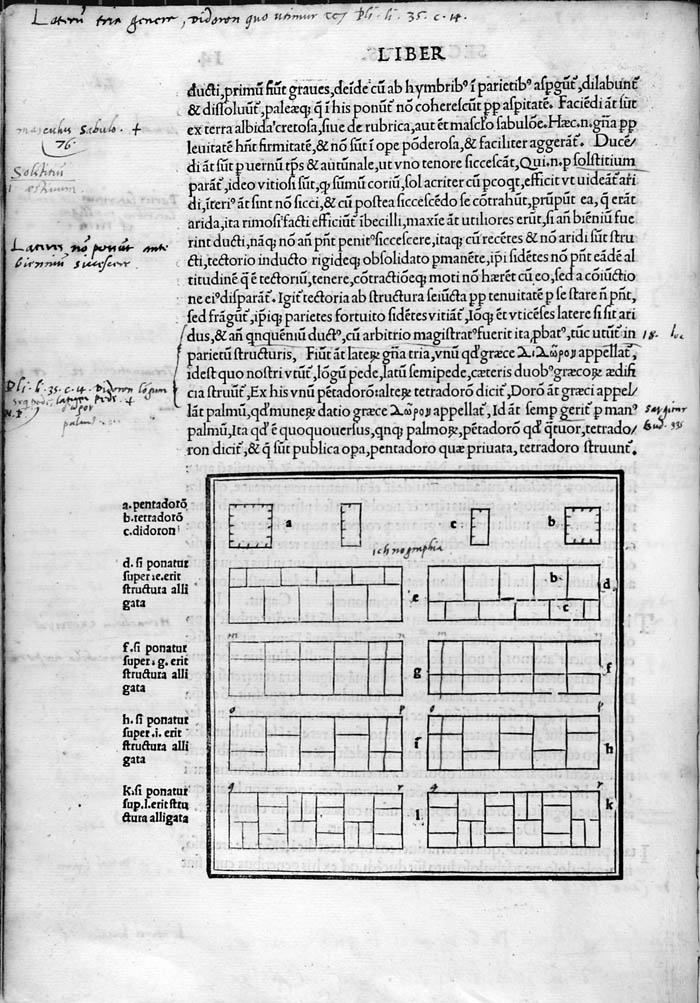 Laterū tria genere, Didoron quo utimur &c Pli. li. 35. c. 14.
LIBER
ducti, primū fiūt graues, deīde cū ab hymbribꝰ ī parietibꝰ aspgūt̄, dilabunt̄
& dissoluūt̄, paleæq; q̄ ī his ponūt̄ nō coherescūt̄ pp aspitatē. Faciēdi āt sūt
ex terra albida cretosa, siue de rubrica, aut ēt masclo sabulōe. Hæc.n. gn̄a pp
leuitatē hn̄t firmitatē, & nō sūt ī ope pōderosa, & faciliter aggerāt̄. Ducē/
di āt sūt p uernū tp̄s & autūnale, ut vno tenore siccescāt, Qui.n. p solstitium
parāt̄, ideo vitiosi sūt, q; sūmū coriū, sol acriter cū pcoqt, efficit vt uideāt̄ ari
di, īteriꝰ āt sint nō sicci, & cū postea siccescēdo se cōtrahūt, prūpūt ea, q̄ erāt
arida, ita rimosi facti efficiūt̄ ībecilli, maxīe āt utiliores erūt, si añ bēniū fue
rint ducti, nāq; nō añ pn̄t penitꝰ siccescere, itaq; cū recētes & nō aridi sūt stru
cti, tectorio inducto rigideq; obsolidato pmanēte, ip̄i sidētes nō pn̄t eādē al
titudinē q̄ ē tectoriū, tenere, cōtractiōeq; moti nō hærēt cū eo, sed a cōiūctio
ne eiꝰ disparāt̄. Igit̄ tectoria ab structura seiūcta pp tenuitatē p se stare n̄ pn̄t,
sed frāgūt̄, ip̄iq; parietes fortuito sidētes vitiāt̄, Iōq; ēt vticēses latere si sit ari
dus, & añ qnquēniū ductꝰ, cū arbitrio magistratꝰ fuerit ita pbatꝰ, tūc utūt̄ in
parietū structuris, Fiūt āt laterꝝ gn̄a tria, vnū qd̄ græce Διδωρον appellat̄,
idest quo nostri vtūt̄, lōgū pede, latū semipede, cæteris duobꝰ græcorꝝ ædifi
cia struūt̄, Ex his vnū pētadorō: alterꝝ tetradorō dicit̄, Dorō āt græci appel/
lāt palmū, qd̄ munerꝝ datio græce Δωρον appellat̄, Id āt semp gerit̄ p manꝰ
palmū, Ita qd̄ ē quoquouersus, qnq; palmorꝝ, pētadorō qd̄ qtuor, tetrado/
ron dicit̄, & q̄ sūt publica opa, pentadoro quæ priuata, tetradoro struunt̄.
masculus sabulo. +
76.
Solstitiū
æstiuum.
Lateres nō ponūt ante
bienniū siccescere
Pli. li. 35. c. 14. Didoron
18.
a. pentadorō
b. tetradorō
c. didoron
d. si ponatur
super .e. erit
structura alli
gata
f. si ponatur
super .g. erit
structura alli
gata
h. si ponatur
super .i. erit
structura alli
gata
k. si ponatur
sup .l. erit stru
ctura alligata
a c b
ichnographia
e b c d
m n m n
g f
o p o p
i h
q r q r
l k